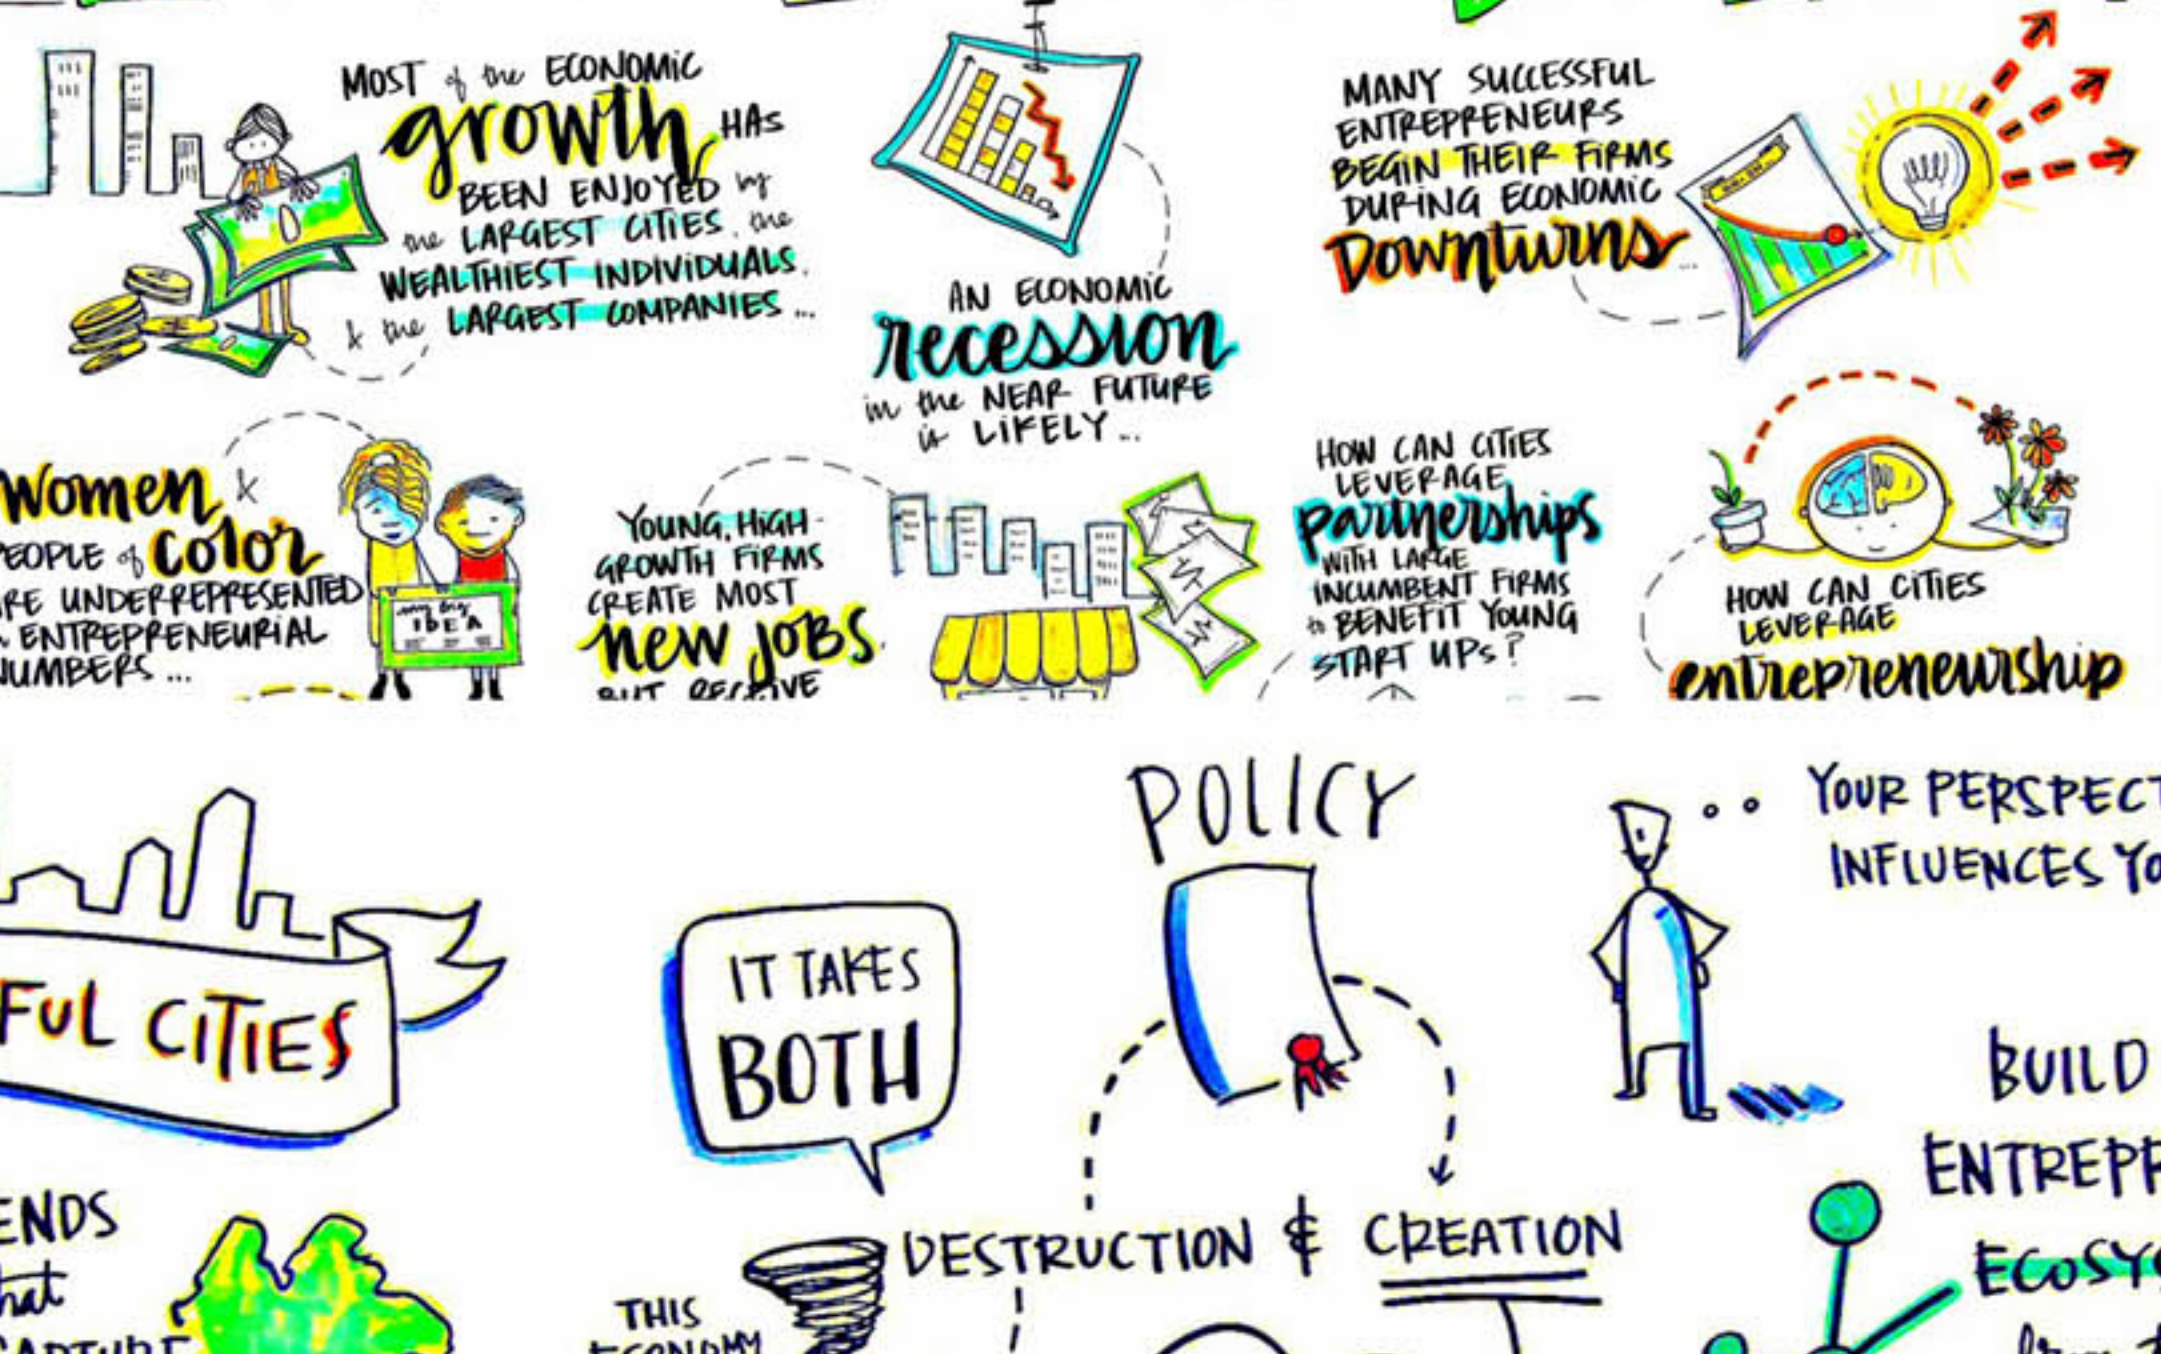 MOST of the ECONOMIC
growth HAS
BEEN ENJOYED by
the LARGEST CITIES, the
WEALTHIEST INDIVIDUALS,
& the LARGEST COMPANIES ...
AN ECONOMIC
recession
in the NEAR FUTURE
is LIKELY ...
MANY SUCCESSFUL
ENTREPRENEURS
BEGIN THEIR FIRMS
DURING ECONOMIC
DOWNTURNS ...
women &
PEOPLE of COLOR
ARE UNDERREPRESENTED
ENTREPRENEURIAL
NUMBERS ...
my big
IDEA
YOUNG, HIGH-
GROWTH FIRMS
CREATE MOST
new JOBS,
BUT RECEIVE
HOW CAN CITIES
LEVERAGE
partnerships
WITH LARGE
INCUMBENT FIRMS
to BENEFIT YOUNG
START UPs?
HOW CAN CITIES
LEVERAGE
entrepreneurship
FUL CITIES
IT TAKES
BOTH
POLICY
YOUR PERSPECT
INFLUENCES YO
BUILD
ENTREPR
ECOSY
from
DESTRUCTION & CREATION
ENDS
hat
CAPTURE
THIS
ECONOMY